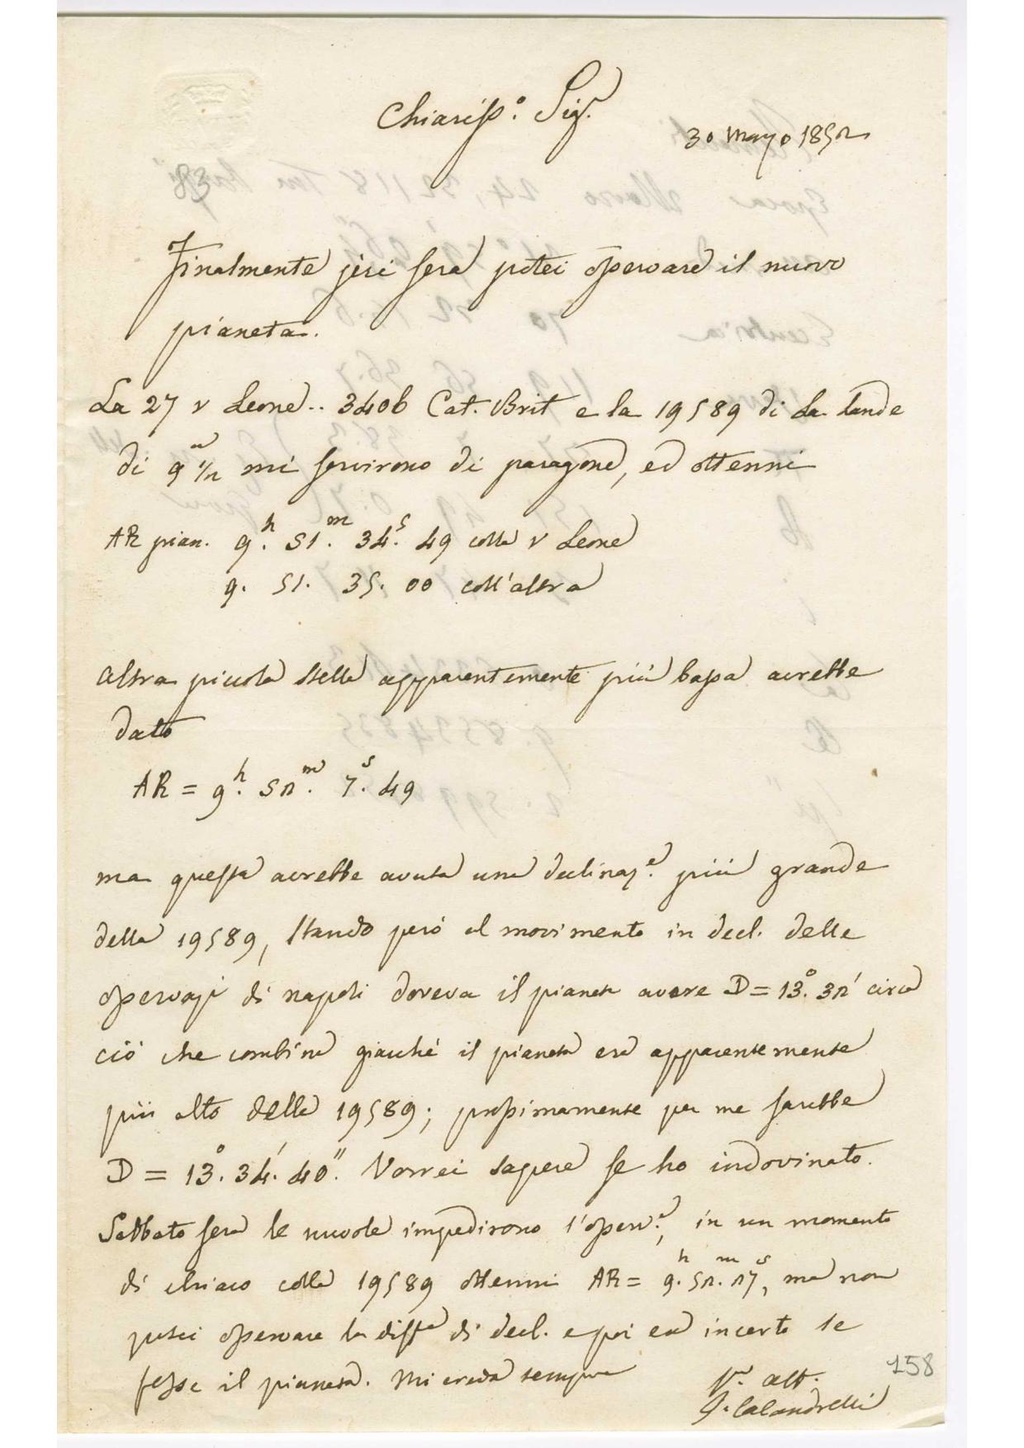 Chiariss.º Sig.r
30 Marzo 1852
83
Finalmente jeri sera potei osservare il nuovo
pianeta.
La 27 ν Leone.. 3406 Cat. Brit e la 19589 di La lande
di 9.a ½ mi servirono di paragone, ed ottenni
AR pian. 9.h 51.m 34.s 49 colla ν Leone
9. 51. 35. 00 coll'altra
Altra piccola stella apparentemente più bassa avrebbe
dato
AR = 9.h 52.m 7.s 49
ma questa avrebbe avuta una declinaz.e più grande
della 19589, stando però al movimento in decl. delle
osservazi di Napoli doveva il pianeta avere D = 13.° 32' circa
ciò che combina giacchè il pianeta era apparentemente
più alto della 19589; prossimamente per me sarebbe
D = 13.° 34.' 40". Vorrei sapere se ho indovinato.
Sabbato sera le nuvole impedirono l'osserv.e, in un momento
di chiaro colla 19589 ottenni AR = 9.h 52.m 27,s ma non
potei osservare la diff.a di decl. e poi era incerto se
fosse il pianeta. Mi creda sempre
158
aff.
I. Calandrelli